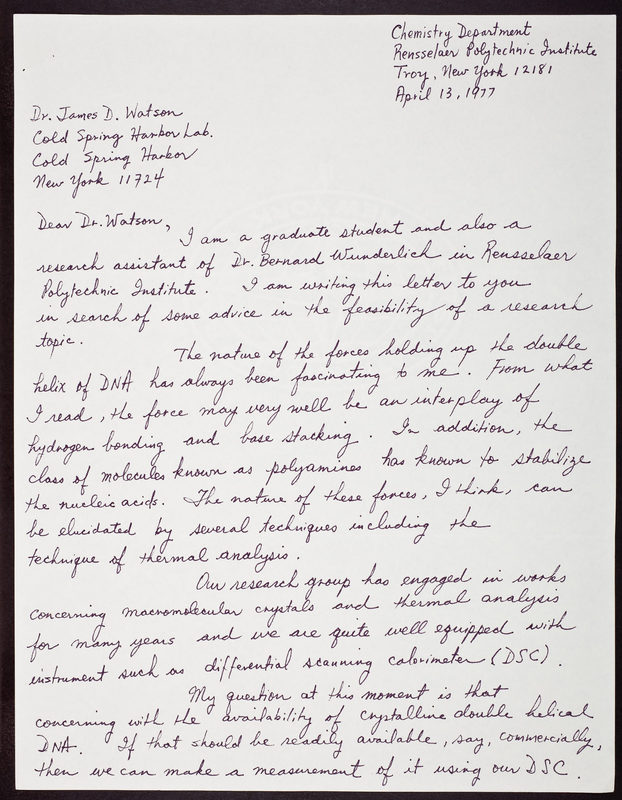 Chemistry Department
Rensselaer Polytechnic Institute
Troy, New York 12181
April 13, 1977
Dr. James D. Watson
Cold Spring Harbor Lab.
Cold Spring Harbor
New York 11724
Dear Dr. Watson,
I am a graduate student and also a
research assistant of Dr. Bernard Wunderlich in Rensselaer
Polytechnic Institute. I am writing this letter to you
in search of some advice in the feasibility of a research
topic.
The nature of the forces holding up the double
helix of DNA has always been fascinating to me. From what
I read, the force may very well be an interplay of
hydrogen bonding and base stacking. In addition, the
class of molecules known as polyamines has known to stabilize
the nucleic acids. The nature of these forces, I think, can
be elucidated by several techniques including the
technique of thermal analysis.
Our research group has engaged in works
concerning macromolecular crystals and thermal analysis
for many years and we are quite well equipped with
instrument such as differential scanning calorimeter (DSC).
My question at this moment is that
concerning with the availability of crystalline double helical
DNA. If that should be readily available, say, commercially,
then we can make a measurement of it using our DSC.